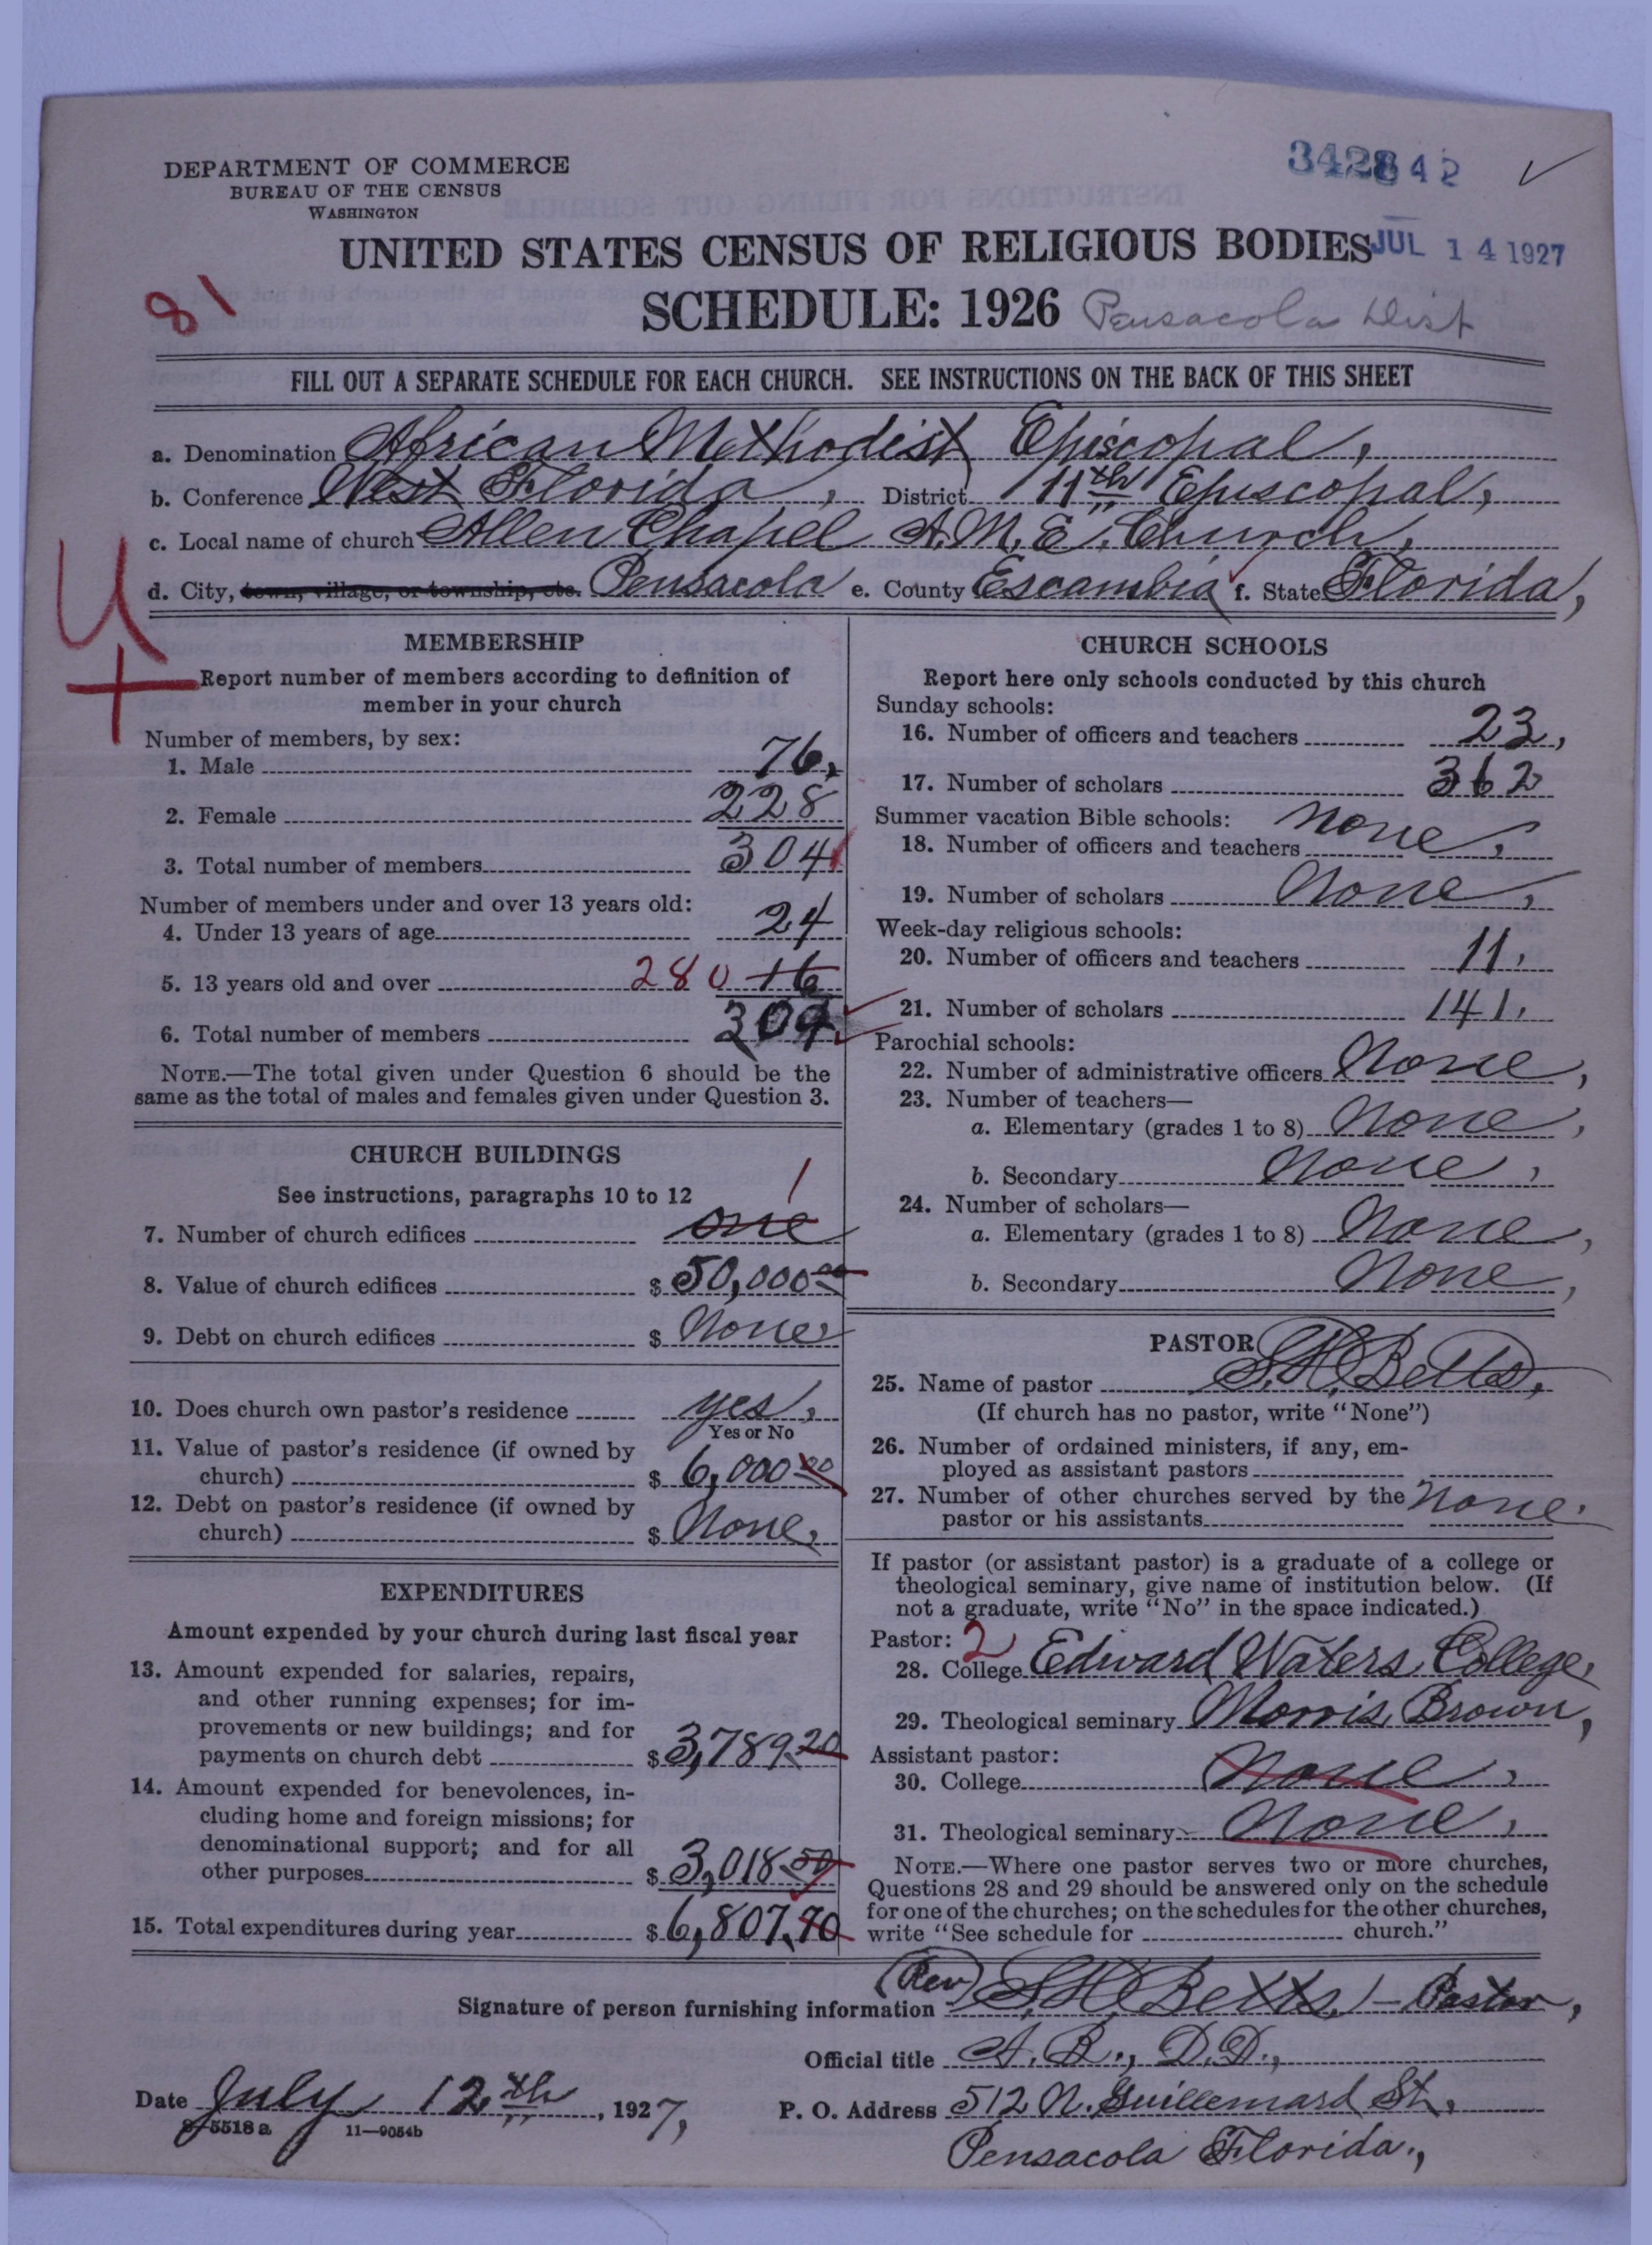 DEPARTMENT OF COMMERCE
BUREAU OF THE CENSUS
WASHINGTON
342842
UNITED STATES CENSUS OF RELIGIOUS BODIES JUL 14 1927
81 SCHEDULE: 1926 Pensacola Dist
FILL OUT A SEPARATE SCHEDULE FOR EACH CHURCH. SEE INSTRUCTIONS ON THE BACK OF THIS SHEET
a. Denomination African Methodist Episcopal,
b. Conference West Florida, District 11th Episcopal,
c. Local name of church Allen Chapel A.M.E. Church,
d. City, town, village, or township, etc. Pensacola e. County Escambia f. State Florida,
U
MEMBERSHIP
Report number of members according to definition of
member in your church
Number of members, by sex:
1. Male 76,
2. Female 228
3. Total number of members 304
Number of members under and over 13 years old:
4. Under 13 years of age 24
5. 13 years old and over 280 16
6. Total number of members 304
NOTE.—The total given under Question 6 should be the
same as the total of males and females given under Question 3.
CHURCH BUILDINGS
See instructions, paragraphs 10 to 12 1
7. Number of church edifices one
8. Value of church edifices $ 50,000 00
9. Debt on church edifices $ None,
10. Does church own pastor's residence yes,
Yes or No
11. Value of pastor's residence (if owned by
church) $ 6,000 00
12. Debt on pastor's residence (if owned by
church) $ None,
EXPENDITURES
Amount expended by your church during last fiscal year
13. Amount expended for salaries, repairs,
and other running expenses; for im-
provements or new buildings; and for
payments on church debt $ 3,789.20
14. Amount expended for benevolences, in-
cluding home and foreign missions; for
denominational support; and for all
other purposes $ 3,018.50
15. Total expenditures during year $ 6,807.70
CHURCH SCHOOLS
Report here only schools conducted by this church
Sunday schools:
16. Number of officers and teachers 23,
17. Number of scholars 362
Summer vacation Bible schools:
18. Number of officers and teachers None,
19. Number of scholars None,
Week-day religious schools:
20. Number of officers and teachers 11,
21. Number of scholars 141,
Parochial schools:
22. Number of administrative officers None,
23. Number of teachers—
a. Elementary (grades 1 to 8) None,
b. Secondary None,
24. Number of scholars—
a. Elementary (grades 1 to 8) None,
b. Secondary None,
PASTOR
25. Name of pastor S.H. Betts,
(If church has no pastor, write "None")
26. Number of ordained ministers, if any, em-
ployed as assistant pastors
27. Number of other churches served by the
pastor or his assistants None.
If pastor (or assistant pastor) is a graduate of a college or
theological seminary, give name of institution below. (If
not a graduate, write "No" in the space indicated.)
Pastor: 2
28. College Edward Waters College,
29. Theological seminary Morris Brown,
Assistant pastor:
30. College None,
31. Theological seminary None,
NOTE.—Where one pastor serves two or more churches,
Questions 28 and 29 should be answered only on the schedule
for one of the churches; on the schedules for the other churches,
write "See schedule for church."
Signature of person furnishing information (Rev) S.H. Betts, - Pastor,
Official title A.B., D.D.,
Date July 12th, 1927, P. O. Address 512 N. Guillemard St.,
8-5518a 11-9054b
Pensacola Florida.,